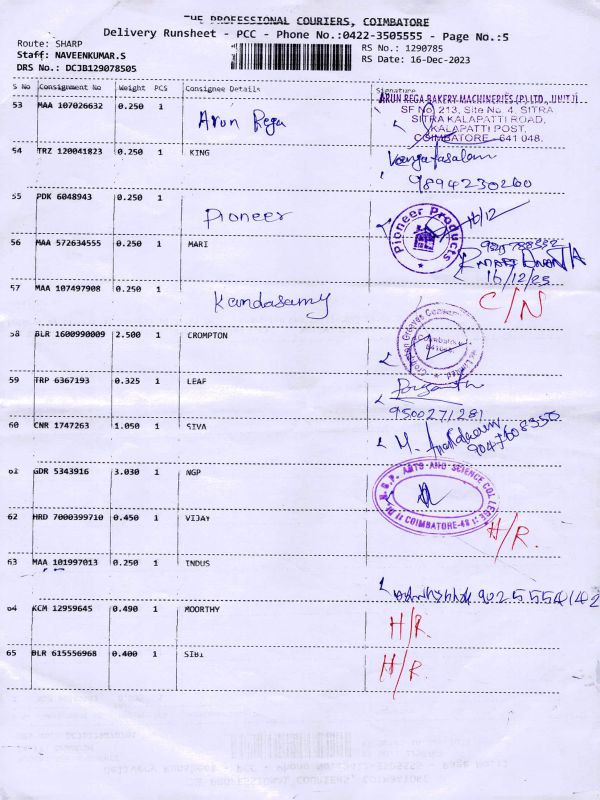 THE PROFESSIONAL COURIERS, COIMBATORE
Delivery Runsheet - PCC - Phone No.:0422-3505555 - Page No.:5
Route: SHARP
RS No.: 1290785
Staff: NAVEENKUMAR.S
RS Date: 16-Dec-2023
DRS No.: DCJB129078505
S No Consignment No Weight PCS Consignee Details Signature
53 MAA 107026632 0.250 1 Arun Rega
ARUN REGA BAKERY MACHINERIES (P) LTD., UNIT I
SF No 213, Site No 4, SITRA
SITRA KALAPATTI ROAD,
KALAPATTI POST,
COIMBATORE - 641 048.
54 TRZ 120041823 0.250 1 KING
9894230260
55 PDK 6048943 0.250 1 Pioneer
Pioneer Products
16/12
56 MAA 572634555 0.250 1 MARI
16/12/23
57 MAA 107497908 0.250 1 Kandasamy C/N
58 BLR 1600990009 2.500 1 CROMPTON
59 TRP 6367193 0.325 1 LEAF
9500271281
60 CNR 1747263 1.050 1 SIVA
M.
61 GDR 5343916 3.030 1 NGP
N.G.P. ARTS AND SCIENCE COLLEGE
COIMBATORE-48
62 HRD 7000399710 0.450 1 VIJAY H/R.
63 MAA 101997013 0.250 1 INDUS
9025554142
64 KCM 12959645 0.490 1 MOORTHY H/R.
65 BLR 615556968 0.400 1 SIBI H/R.